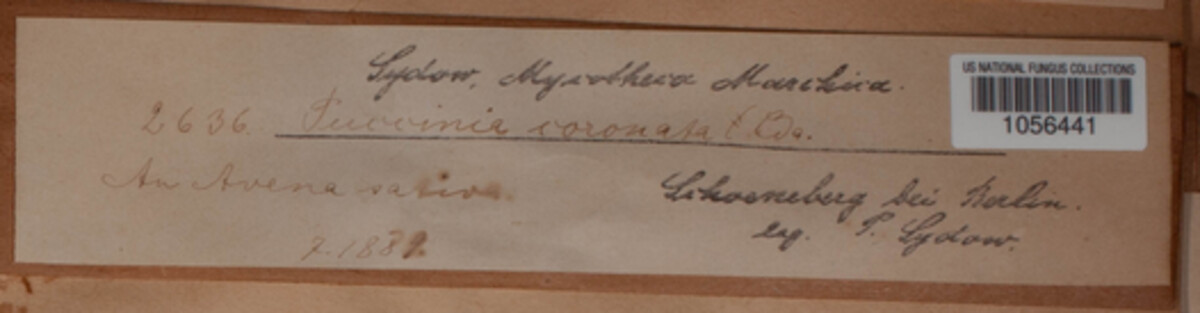 Sydow, Mycotheca Marchica.
US NATIONAL FUNGUS COLLECTIONS
1056441
2636. Puccinia coronata Cda.
An Avena sativa
Schoeneberg bei Berlin.
leg. P. Sydow.
7.1889.